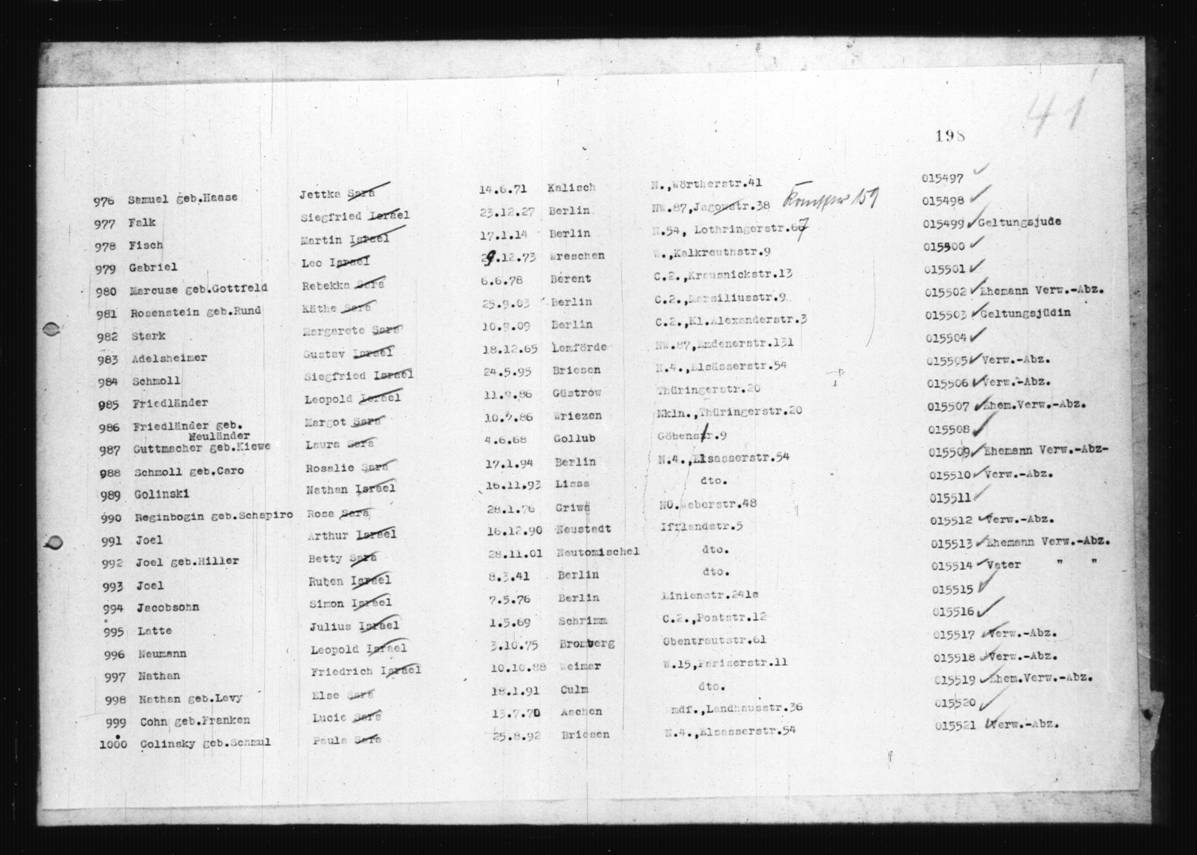 41
198
976 Samuel geb.Haase Jettka Sara 14.6.71 Kalisch N.,Wörtherstr.41 015497
977 Falk Siegfried Israel 23.12.27 Berlin NW.87,Jagowstr.38 015498
978 Fisch Martin Israel 17.1.14 Berlin N.54, Lothringerstr.67 015499 Geltungsjude
979 Gabriel Leo Israel 29.12.73 Wreschen W.,Kalkreuthstr.9 015500
980 Marcuse geb.Gottfeld Rebekka Sara 6.6.78 Berent C.2.,Krausnickstr.13 015501
981 Rosenstein geb.Rund Käthe Sara 25.9.03 Berlin C.2.,Marsiliusstr.9 015502 Ehemann Verw.-Abz.
982 Stark Margarete Sara 10.9.09 Berlin C.2.,Kl.Alexanderstr.3 015503 Geltungsjüdin
983 Adelsheimer Gustav Israel 18.12.65 Lemförde NW.87,Emdenerstr.131 015504
984 Schmoll Siegfried Israel 24.5.95 Briesen N.4.,Elsässerstr.54 015505 Verw.-Abz.
985 Friedländer Leopold Israel 11.9.86 Güstrow Thüringerstr.20 015506 Verw.-Abz.
986 Friedländer geb. Margot Sara Wriezen Nkln.,Thüringerstr.20 015507 Ehem.Verw.-Abz.
Neuländer
987 Guttmacher geb.Kiewe Laura Sara 4.6.68 Gollub Göbenstr.9 015508
988 Schmoll geb.Caro Rosalie Sara 17.1.94 Berlin N.4.,Elsasserstr.54 015509 Ehemann Verw.-Abz-
989 Golinski Nathan Israel 16.11.93 Lissa dto. 015510 Verw.-Abz.
990 Reginbogin geb.Schapiro Rosa Sara 28.1.76 Griwa NO.Weberstr.48 015511
991 Joel Arthur Israel 16.12.90 Neustadt Ifflandstr.5 015512 Verw.-Abz.
992 Joel geb.Hiller Betty Sara 28.11.01 Neutomischel dto. 015513 Ehemann Verw.-Abz.
993 Joel Ruben Israel 8.3.41 Berlin dto. 015514 Vater " "
994 Jacobsohn Simon Israel 7.5.76 Berlin Linienstr.241a 015515
995 Latte Julius Israel 1.5.69 Schrimm C.2.,Poststr.12 015516
996 Neumann Leopold Israel 3.10.75 Bromberg Obentrautstr.61 015517 Verw.-Abz.
997 Nathan Friedrich Israel 10.10.88 Weimar W.15,Pariserstr.11 015518 Verw.-Abz.
998 Nathan geb.Levy Else Sara 18.1.91 Culm dto. 015519 Ehem.Verw.-Abz.
999 Cohn geb.Franken Lucie Sara 13.7.70 Aachen Landhausstr.36 015520
1000 Golinsky geb.Schmul Paula Sara 25.8.92 Briesen N.4.,Elsasserstr.54 015521 Verw.-Abz.